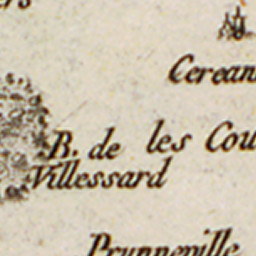 Cerean
B. de
Villessard
les Cou
Prunneville